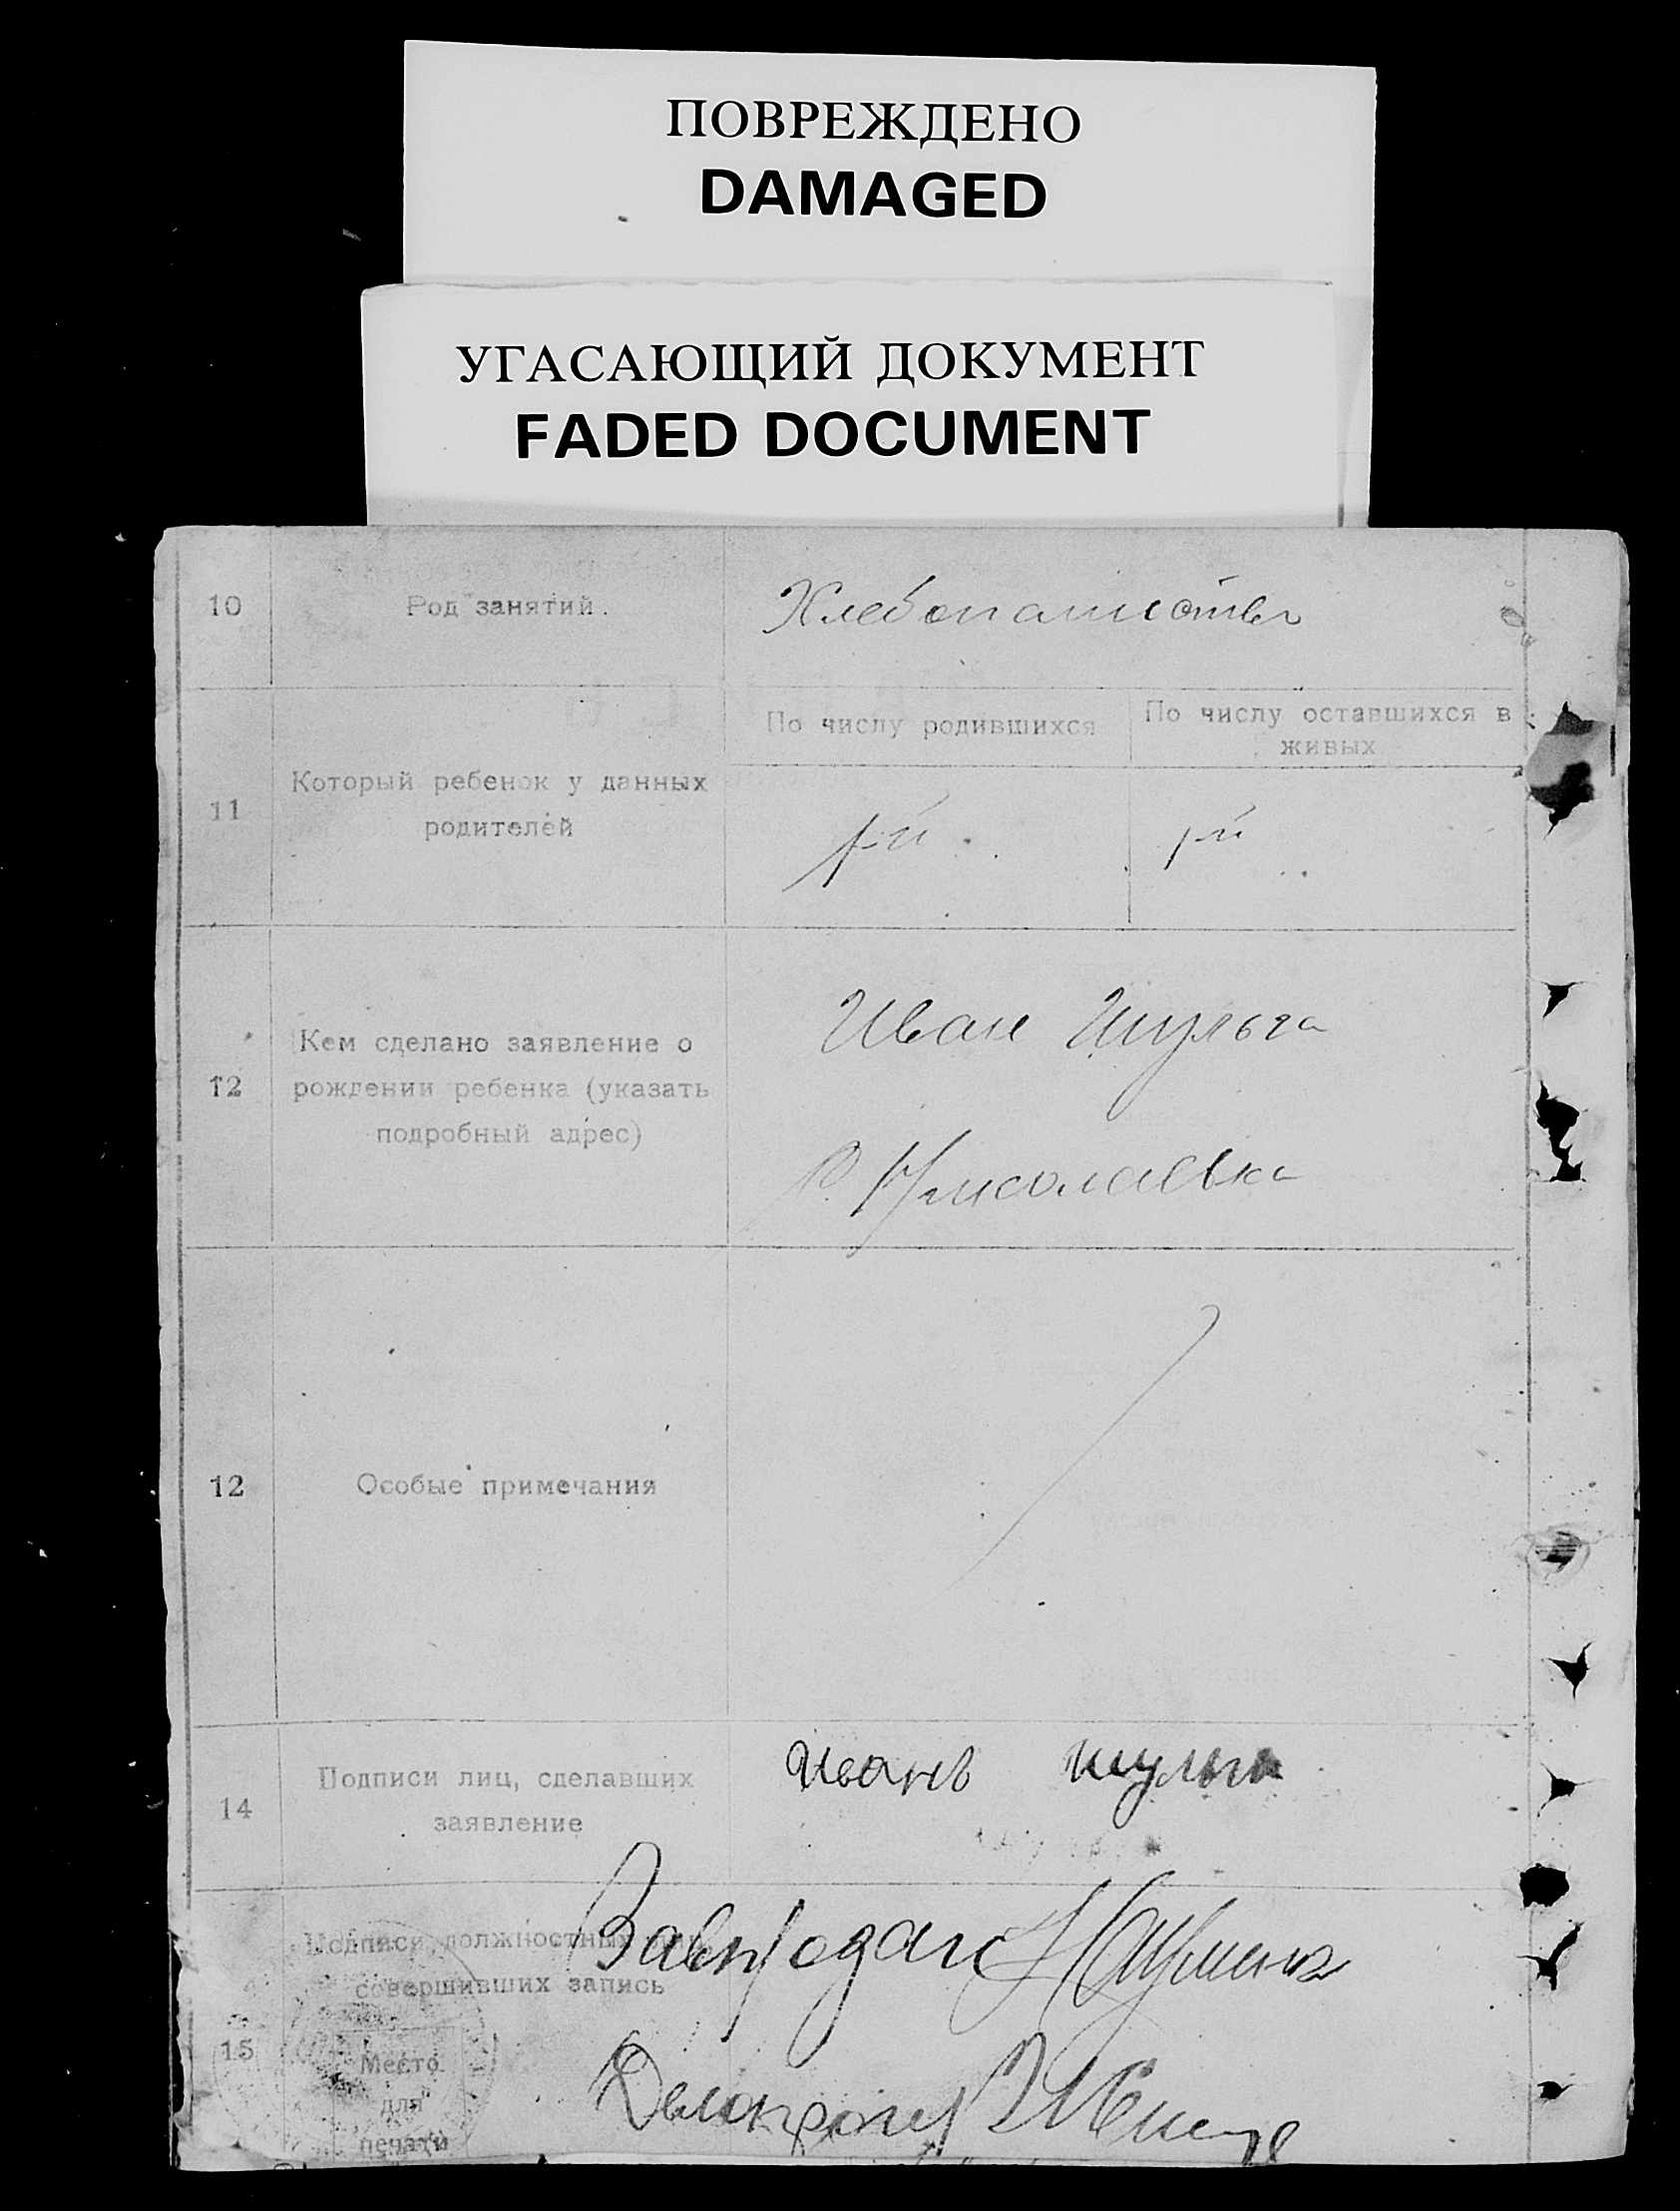 ПОВРЕЖДЕНО
DAMAGED
УГАСАЮЩИЙ ДОКУМЕНТ
FADED DOCUMENT
10 Род занятий. Хлебопашество
По числу родившихся По числу оставшихся в живых
11 Который ребенок у данных
родителей
12 Кем сделано заявление о
рождении ребенка (указать
подробный адрес)
Иван Шульга
с. Николаевка
12 Особые примечания
14 Подписи лиц, сделавших
заявление
Иванъ шульга
Подписи должностных
совершивших запись
15
Место
для
печати